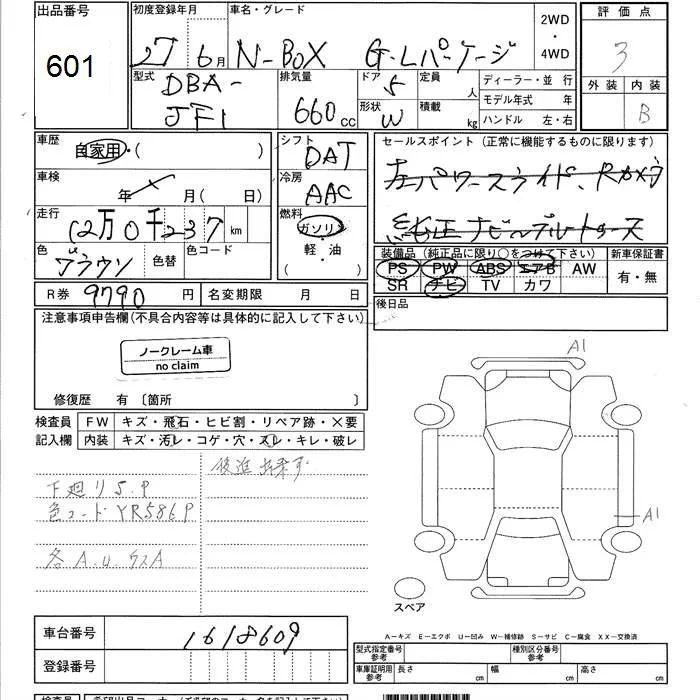 出品番号
601
初度登録年月
27 6月
車名・グレード
N-BOX G・Lパッケージ
2WD
・
4WD
評価点
3
外装 内装
B
型式
DBA-
JF1
排気量
660cc
ドア 5
形状 W
定員 人
積載 kg
ディーラー・並行
モデル年式 年
ハンドル 左・右
車歴
自家用・( )
車検
年 月( 日)
走行
12万0千237km
色
ブラウン
色替
色コード
シフト
DAT
冷房
AAC
燃料
ガソリン
軽・油
( )
セールスポイント (正常に機能するものに限ります)
左パワースライド、
純正ナビ
装備品 (純正品に限り○をつけて下さい)
PS PW ABS エアB AW
SR ナビ TV カワ
新車保証書
有・無
R券 9790円
名変期限 月 日
後日品
注意事項申告欄(不具合内容等は具体的に記入して下さい)
ノークレーム車
no claim
修復歴 有 〔箇所 〕
検査員
記入欄
FW キズ・飛石・ヒビ割・リペア跡・×要
内装 キズ・汚レ・コゲ・穴・スレ・キレ・破レ
下廻りS.P
色コードYR586P
各A.U.ウスA
後進出来ず
A1
A1
スペア
A-キズ E-エクボ U-凹み W-補修跡 S-サビ C-腐食 XX-交換済
車台番号
1618609
登録番号
型式指定番号
参考
種別区分番号
参考
車庫証明用
参考
長さ cm
幅 cm
高さ cm
検査員